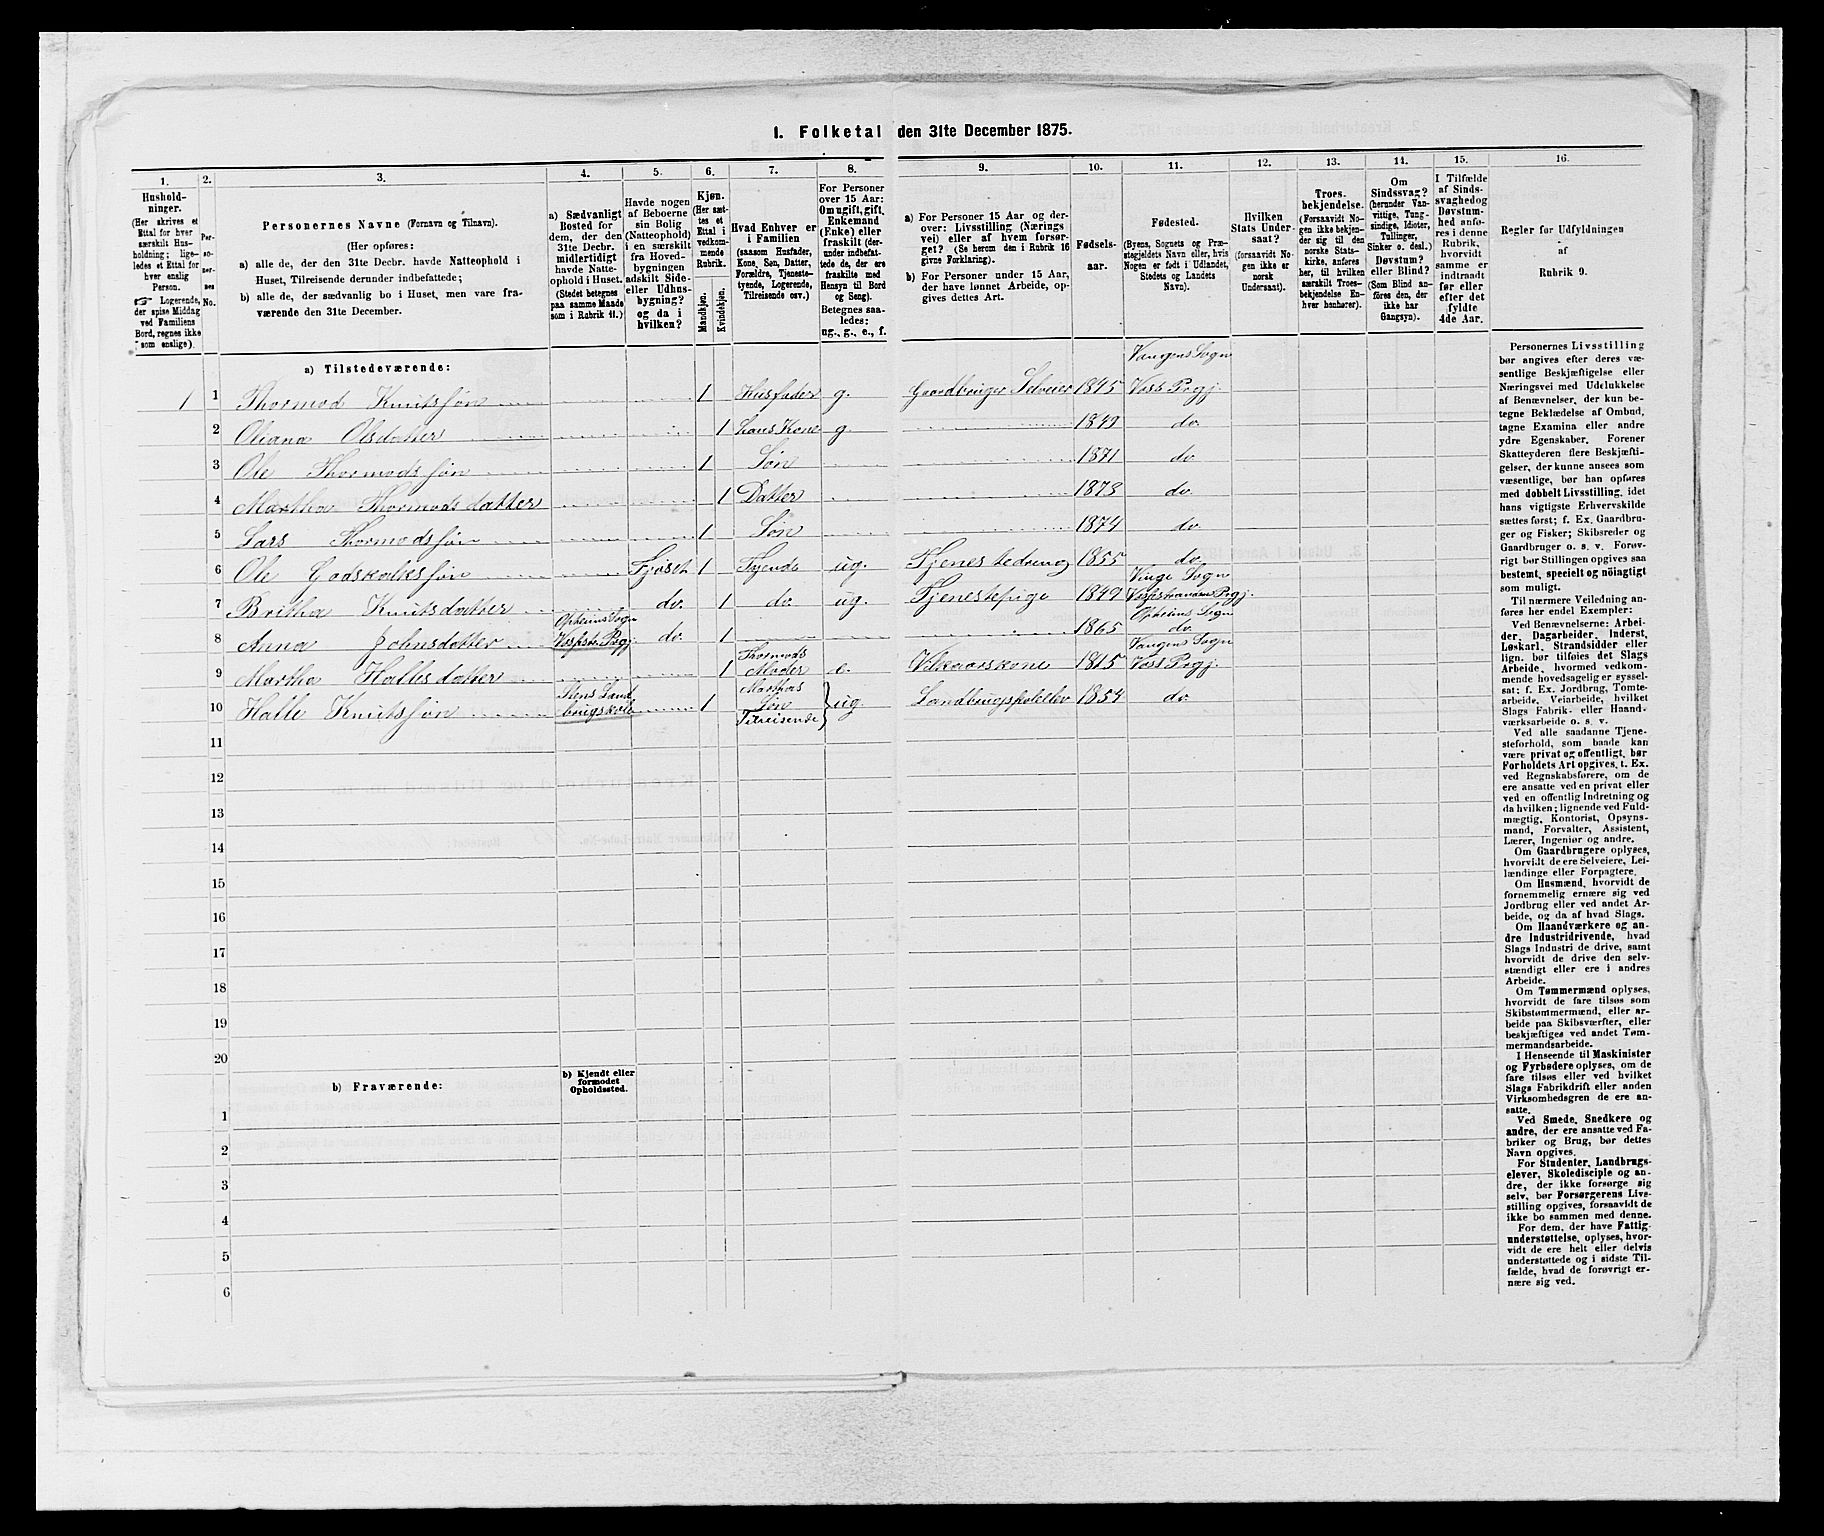 1. Folketal den 31te December 1875.
1. 2. 3. 4. 5. 6. 7. 8. 9. 10. 11. 12. 13. 14. 15. 16.
Hushold-
ninger.
(Her skrives et
Ettal for hver
særskilt Hus-
holdning; lige-
ledes et Ettal for
hver enslig
Person.
☞ Logerende,
der spise Middag
ved Familiens
Bord, regnes ikke
som enslige).
Per-
so-
ner-
nes
No.
Personernes Navne (Fornavn og Tilnavn).
(Her opføres:
a) alle de, der den 31te Decbr. havde Natteophold i
Huset, Tilreisende derunder indbefattede;
b) alle de, der sædvanlig bo i Huset, men vare fra-
værende den 31te December.
a) Sædvanligt
Bosted for
dem, der den
31te Decbr.
midlertidigt
havde Natte-
ophold i Huset.
(Stedet betegnes
paa samme Maade
som i Rubrik 11.)
Havde nogen
af Beboerne
sin Bolig
(Natteophold)
i en særskilt
fra Hoved-
bygningen
adskilt Side-
eller Udhus-
bygning?
og da i
hvilken?
Kjøn.
(Her sæt-
tes et
Ettal i
vedkom-
mende
Rubrik.
Mandkjøn.
Kvindekjøn.
Hvad Enhver er
i Familien
(saasom Husfader,
Kone, Søn, Datter,
Forældre, Tjeneste-
tyende, Logerende,
Tilreisende osv.)
For Personer
over 15 Aar:
Om ugift, gift,
Enkemand
(Enke) eller
fraskilt (der-
under indbefat-
tede de, der ere
fraskilte med
Hensyn til Bord
og Seng).
Betegnes saa-
ledes:
ug., g., e., f.
a) For Personer 15 Aar og der-
over: Livsstilling (Nærings
vei) eller af hvem forsør-
get? (Se herom den i Rubrik 16
givne Forklaring).
b) For Personer under 15 Aar,
der have lønnet Arbeide, op-
gives dettes Art.
Fødsels-
aar.
Fødested.
(Byens, Sognets og Præ-
stegjeldets Navn eller, hvis
Nogen er født i Udlandet,
Stedets og Landets
Navn).
Hvilken
Stats Under-
saat?
(forsaavidt No-
gen ikke er
norsk
Undersaat).
Troes-
bekjendelse.
(Forsaavidt No-
gen ikke bekjen-
der sig til den
norske Stats-
kirke, anføres
her, til hvilken
særskilt Troes-
bekjendelse En-
hver henhører).
Om
Sindssvag?
(herunder Van-
vittige, Tung-
sindige, Idioter,
Tullinger,
Sinker o. desl.)
Døvstum?
eller Blind?
(Som Blind an-
føres den, der
ikke har
Gangsyn).
I Tilfælde
af Sinds-
svaghed og
Døvstum-
hed anfø-
res i denne
Rubrik,
hvorvidt
samme er
indtraadt
før eller
efter det
fyldte
4de Aar.
Regler for Udfyldningen
af
Rubrik 9.
a) Tilstedeværende:
Vangens Sogn
1 1 Thormod Knutssøn 1 Husfader g. Gaardbruger Selveier 1845 Voss Prgj.
2 Oliana Olsdatter 1 hans Kone g. 1849 do.
3 Ole Thormodssøn 1 Søn 1871 do
4 Martha Thormodsdatter 1 Datter 1873 do.
5 Lars Thormodssøn 1 Søn 1874 do.
6 Ole Godskalkssøn Fjøset 1 Tyende ug. Tjenestedreng 1855 do.
Vinge Sogn
7 Britha Knutsdatter do. 1 do. ug. Tjenestepige 1849 Vossestranden Prgj.
Opheims Sogn Opheims Sogn
8 Anna Johnsdatter Vossestr. Prgj. do. 1 1865 do.
Thormods Vangens Sogn
9 Martha Hallesdatter 1 Moder e. Vilkaarskone 1815 Voss Prgj.
Stens Land Marthas
10 Halle Knutssøn brugskole 1 Søn ug. Landbrugsskoleelev 1854 do.
Tilreisende
11
12
13
14
15
16
17
18
19
20
b) Fraværende:
b) Kjendt eller
formodet
Opholdssted.
1
2
3
4
5
6
Personernes Livsstilling
bør angives efter deres væ-
sentlige Beskjæftigelse eller
Næringsvei med Udelukkelse
af Benævnelser, der kun be-
tegne Beklædelse af Ombud,
tagne Examina eller andre
ydre Egenskaber. Forener
Skatteyderen flere Beskjæfti-
gelser, der kunne ansees som
væsentlige, bør han opføres
med dobbelt Livsstilling, idet
hans vigtigste Erhvervskilde
sættes først; f. Ex. Gaardbru-
ger og Fisker; Skibsreder og
Gaardbruger o. s. v. Forøv-
rigt bør Stillingen opgives saa
bestemt, specielt og nöiagtigt
som muligt.
Til nærmere Veiledning an-
føres her endel Exempler:
Ved Benævnelserne: Arbei-
der, Dagarbeider, Inderst,
Løskarl, Strandsidder eller
lign. bør tilføies det Slags
Arbeide, hvormed vedkom-
mende hovedsagelig er syssel-
sat; f. Ex. Jordbrug, Tomte-
arbeide, Veiarbeide, hvilket
Slags Fabrik- eller Haand-
værksarbeide o. s. v.
Ved alle saadanne Tjene-
steforhold, som baade kan
være privat og offentligt, bør
Forholdets Art opgives, t. Ex.
ved Regnskabsførere, om de
ere ansatte ved en privat eller
ved en offentlig Indretning og
da hvilken; lignende ved Fuld-
mægtig, Kontorist, Opsyns-
mand, Forvalter, Assistent,
Lærer, Ingeniør og andre.
Om Gaardbrugere oplyses,
hvorvidt de ere Selveiere, Lei-
lændinge eller Forpagtere.
Om Husmænd, hvorvidt de
fornemmelig ernære sig ved
Jordbrug eller ved andet Ar-
beide, og da af hvad Slags.
Om Haandværkere og an-
dre Industridrivende, hvad
Slags Industri de drive, samt
hvorvidt de drive den selv-
stændigt eller ere i andres
Arbeide.
Om Tømmermænd oplyses,
hvorvidt de fare tilsøs som
Skibstømmermænd, eller ar-
beide paa Skibsværfter, eller
beskjæftiges ved andet Tøm-
mermandsarbeide.
I Henseende til Maskinister
og Fyrbødere oplyses, om de
fare tilsøs eller ved hvilket
Slags Fabrikdrift eller anden
Virksomhedsgren de ere an-
satte.
Ved Smede, Snedkere og
andre, der ere ansatte ved Fa-
briker og Brug, bør dettes
Navn opgives.
For Studenter, Landbrugs-
elever, Skoledisciple og an-
dre, der ikke forsørge sig
selv, bør Forsørgerens Livs-
stilling opgives, forsaavidt de
ikke bo sammen med denne.
For dem, der have Fattig-
understøttelse, oplyses, hvor-
vidt de ere helt eller delvis
understøttede og i sidste Til-
fælde, hvad de forøvrigt er-
nære sig ved.